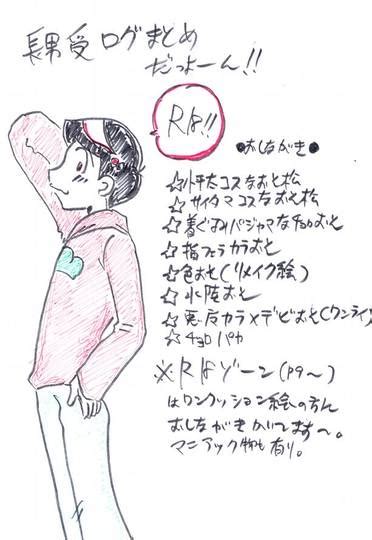 長男受ログまとめ
だよーん!!
R18!!
●おしながき●
☆小平太コスなおそ松
☆サイタマコスなおそ松
☆着ぐるみパジャマなチョロおそ
☆指フェラカラおそ
☆色おそ(リメイク絵)
☆水陸おそ
☆悪魔カラ×デビおそ(ワンライ)
☆チョロバカ
※R18ゾーン(P9〜)
はワンクッション絵の方に
おしながきかいてます〜。
マニアック物も有り。